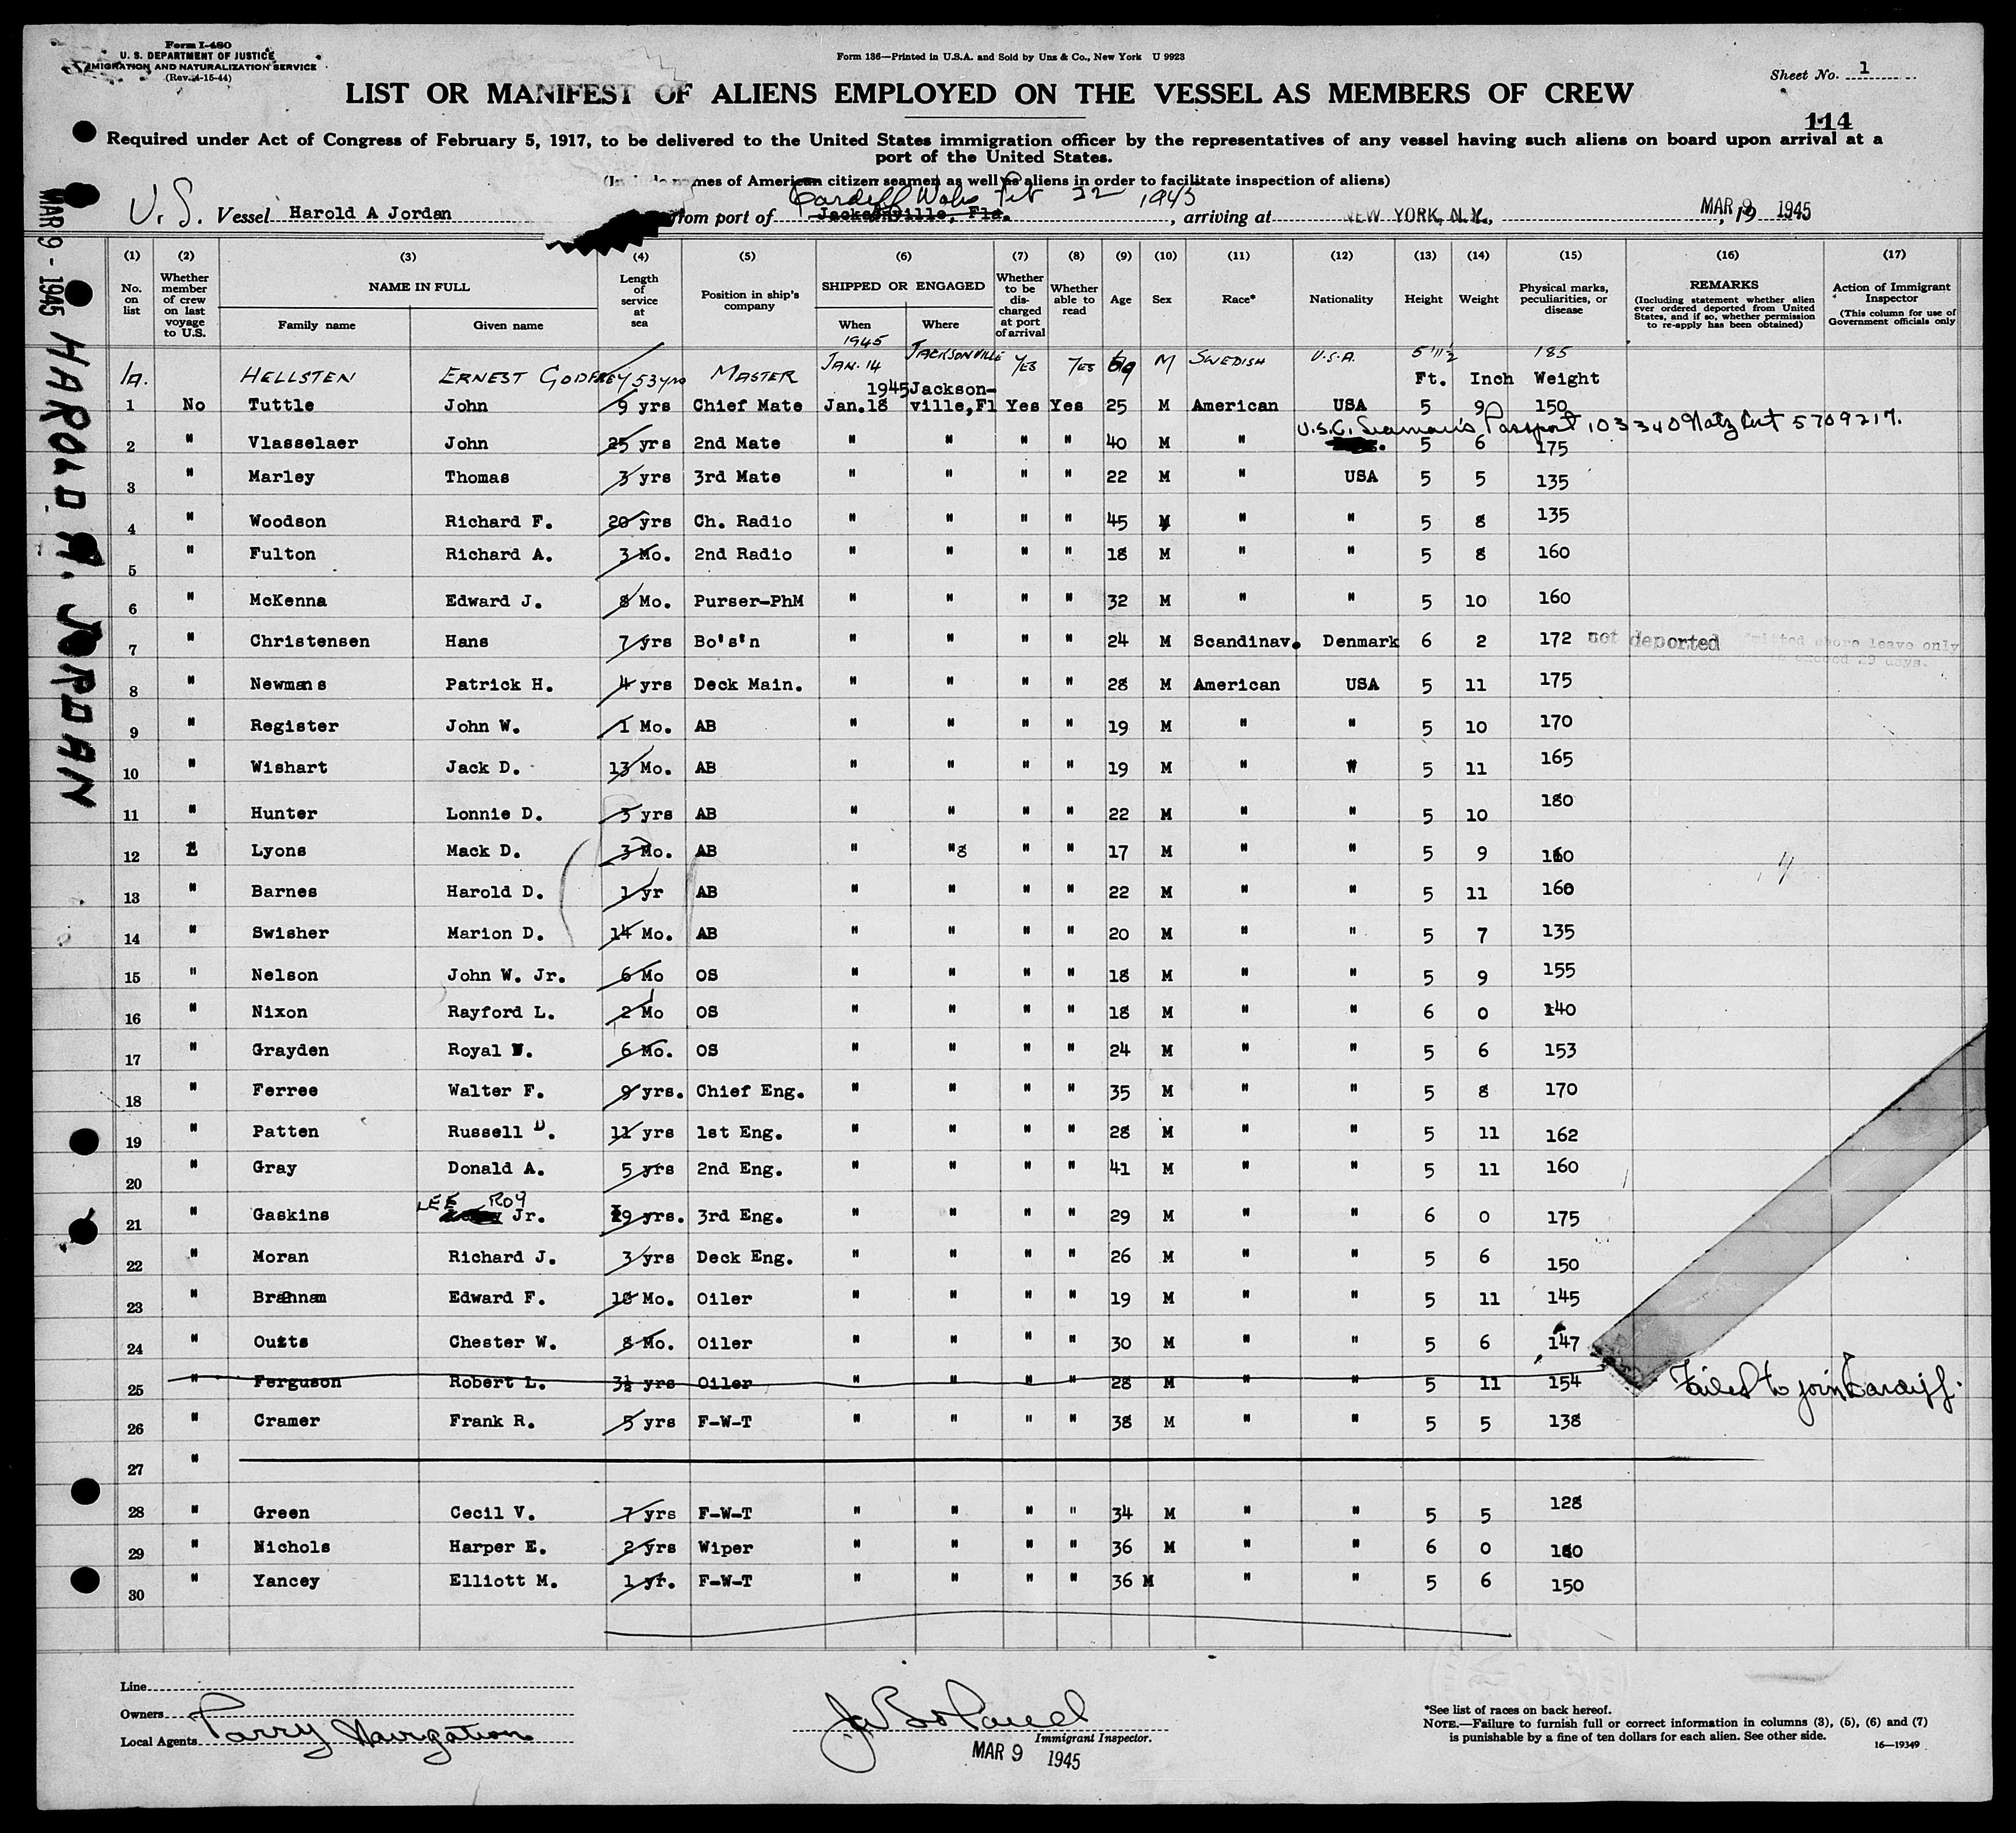 Form I-480
U. S. DEPARTMENT OF JUSTICE
MIGRATION AND NATURALIZATION SERVICE
(Rev. 4-15-44)
Form 136—Printed in U.S.A. and Sold by Unz & Co., New York U 9923
Sheet No. 1
LIST OR MANIFEST OF ALIENS EMPLOYED ON THE VESSEL AS MEMBERS OF CREW
114
Required under Act of Congress of February 5, 1917, to be delivered to the United States immigration officer by the representatives of any vessel having such aliens on board upon arrival at a
port of the United States.
names of American citizen seamen as well as aliens in order to facilitate inspection of aliens)
Cardiff Wales Feb 22 1945
U.S. Vessel Harold A Jordan from port of Jacksonville, Fla. , arriving at NEW YORK, N.Y., MAR 9 , 19 1945
MAR 9 - 1945 HAROLD A. JORDAN
(1) (2) (3) (4) (5) (6) (7) (8) (9) (10) (11) (12) (13) (14) (15) (16) (17)
No. on list
Whether member of crew on last voyage to U.S.
NAME IN FULL
Family name Given name
Length of service at sea
Position in ship's company
SHIPPED OR ENGAGED
When Where
Whether to be discharged at port of arrival
Whether able to read
Age Sex Race* Nationality Height Weight
Physical marks, peculiarities, or disease
REMARKS
(Including statement whether alien ever ordered deported from United States, and if so, whether permission to re-apply has been obtained)
Action of Immigrant Inspector
(This column for use of Government officials only
1a. HELLSTEN ERNEST GODFREY 53 yrs MASTER 1945 JAN. 14 JACKSONVILLE YES YES 69 M SWEDISH U.S.A. 5'11½ 185
Ft. Inch Weight
1 No Tuttle John 9 yrs Chief Mate 1945 Jan.18 Jackson-ville,Fl Yes Yes 25 M American USA 5 9 150
U.S.C. Seaman's Passport 103340 Natz Cert 5709217.
2 " Vlasselaer John 25 yrs 2nd Mate " " " " 40 M " 5 6 175
3 " Marley Thomas 3 yrs 3rd Mate " " " " 22 M " USA 5 5 135
4 " Woodson Richard F. 20 yrs Ch. Radio " " " " 45 M " " 5 8 135
5 " Fulton Richard A. 3 Mo. 2nd Radio " " " " 18 M " " 5 8 160
6 " McKenna Edward J. 8 Mo. Purser-PhM " " " " 32 M " " 5 10 160
7 " Christensen Hans 7 yrs Bo's'n " " " " 24 M Scandinav. Denmark 6 2 172 not deported mitted shore leave only
exceed 29 days.
8 " Newmans Patrick H. 4 yrs Deck Main. " " " " 28 M American USA 5 11 175
9 " Register John W. 1 Mo. AB " " " " 19 M " " 5 10 170
10 " Wishart Jack D. 13 Mo. AB " " " " 19 M " " 5 11 165
11 " Hunter Lonnie D. 3 yrs AB " " " " 22 M " " 5 10 180
12 " Lyons Mack D. 3 Mo. AB " "8 " " 17 M " " 5 9 160
13 " Barnes Harold D. 1 yr AB " " " " 22 M " " 5 11 160
14 " Swisher Marion D. 14 Mo. AB " " " " 20 M " " 5 7 135
15 " Nelson John W. Jr. 6 Mo OS " " " " 18 M " " 5 9 155
16 " Nixon Rayford L. 2 Mo OS " " " " 18 M " " 6 0 140
17 " Grayden Royal W. 6 Mo. OS " " " " 24 M " " 5 6 153
18 " Ferree Walter F. 9 yrs. Chief Eng. " " " " 35 M " " 5 8 170
19 " Patten Russell D. 11 yrs 1st Eng. " " " " 28 M " " 5 11 162
20 " Gray Donald A. 5 yrs 2nd Eng. " " " " 41 M " " 5 11 160
21 " Gaskins LEE ROY Jr. 9 yrs. 3rd Eng. " " " " 29 M " " 6 0 175
22 " Moran Richard J. 3 yrs Deck Eng. " " " " 26 M " " 5 6 150
23 " Edward F. 18 Mo. Oiler " " " " 19 M " " 5 11 145
24 " Outts Chester W. 8 Mo. Oiler " " " " 30 M " " 5 6 147
25 " Ferguson Robert L. 3½ yrs Oiler " " " " 28 M " " 5 11 154 Failed to join Cardiff.
26 " Cramer Frank R. 5 yrs F-W-T " " " " 38 M " " 5 5 138
27 "
28 " Green Cecil V. 7 yrs F-W-T " " " " 34 M " " 5 5 128
29 " Nichols Harper E. 2 yrs Wiper " " " " 36 M " " 6 0 180
30 " Yancey Elliott M. 1 yr. F-W-T " " " " 36 M " " 5 6 150
Line
Owners
Local Agents Parry Navigation
Immigrant Inspector.
MAR 9 1945
*See list of races on back hereof.
NOTE.—Failure to furnish full or correct information in columns (3), (5), (6) and (7)
is punishable by a fine of ten dollars for each alien. See other side.
16—19349